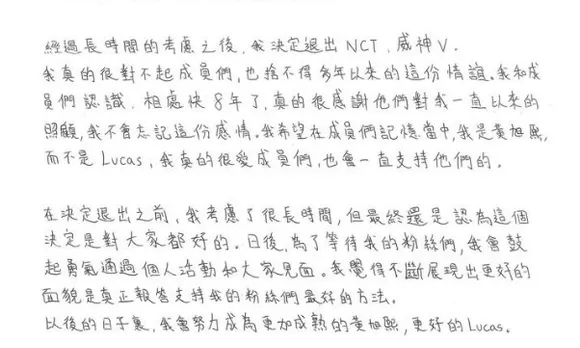 經過長時間的考慮之後，我決定退出NCT，威神V．
我真的很對不起成員們，也捨不得多年以來的這份情誼。我和成
員們認識，相處快8年了，真的很感謝他們對我一直以來的
照顧，我不會忘記這份感情。我希望在成員們記憶當中，我是黃旭熙，
而不是Lucas，我真的很愛成員們，也會一直支持他們的。
在決定退出之前，我考慮了很長時間，但最終還是認為這個
決定是對大家都好的。日後，為了等待我的粉絲們，我會鼓
起勇氣通過個人活動和大家見面。我覺得不斷展現出更好的
面貌是真正報答支持我的粉絲們最好的方法。
以後的日子裏，我會努力成為更加成熟的黃旭熙，更好的Lucas。